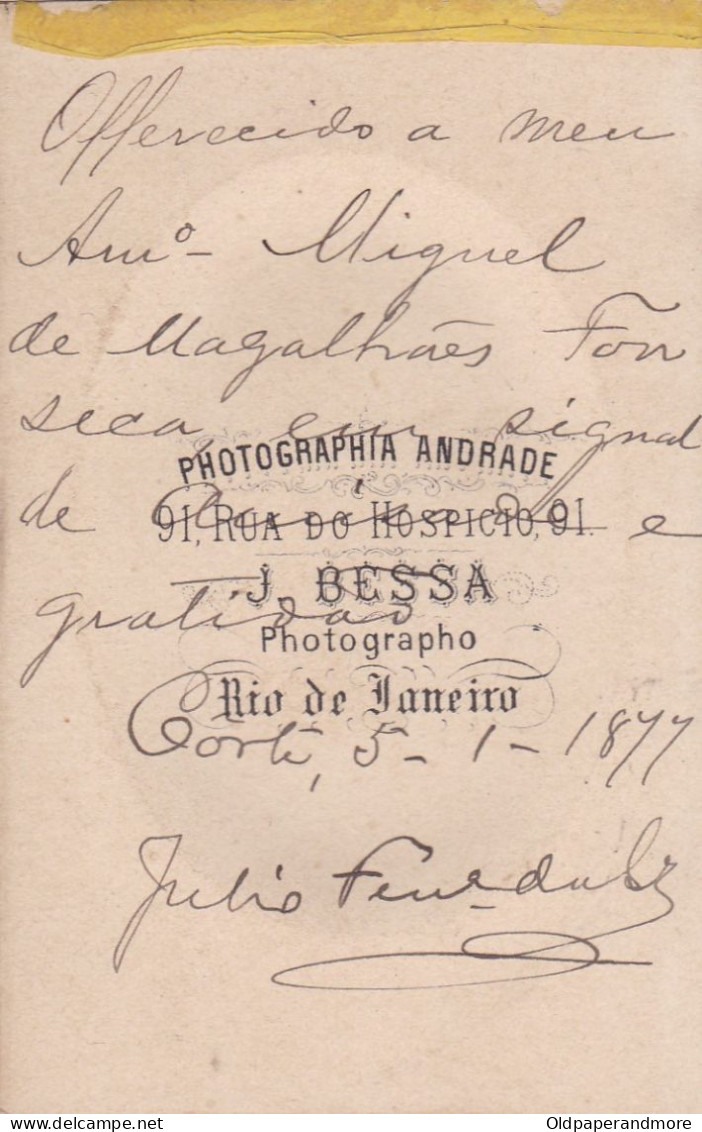 Offerecido a meu
Am.º Miguel
de Magalhães Fon
seca, em signal
PHOTOGRAPHIA ANDRADE
de e
91, RUA DO HOSPICIO, 91.
J. BESSA
gratidão
Photographo
Rio de Janeiro
Corte, 5-1-1877
Julio
delcampe.net
Oldpaperandmore